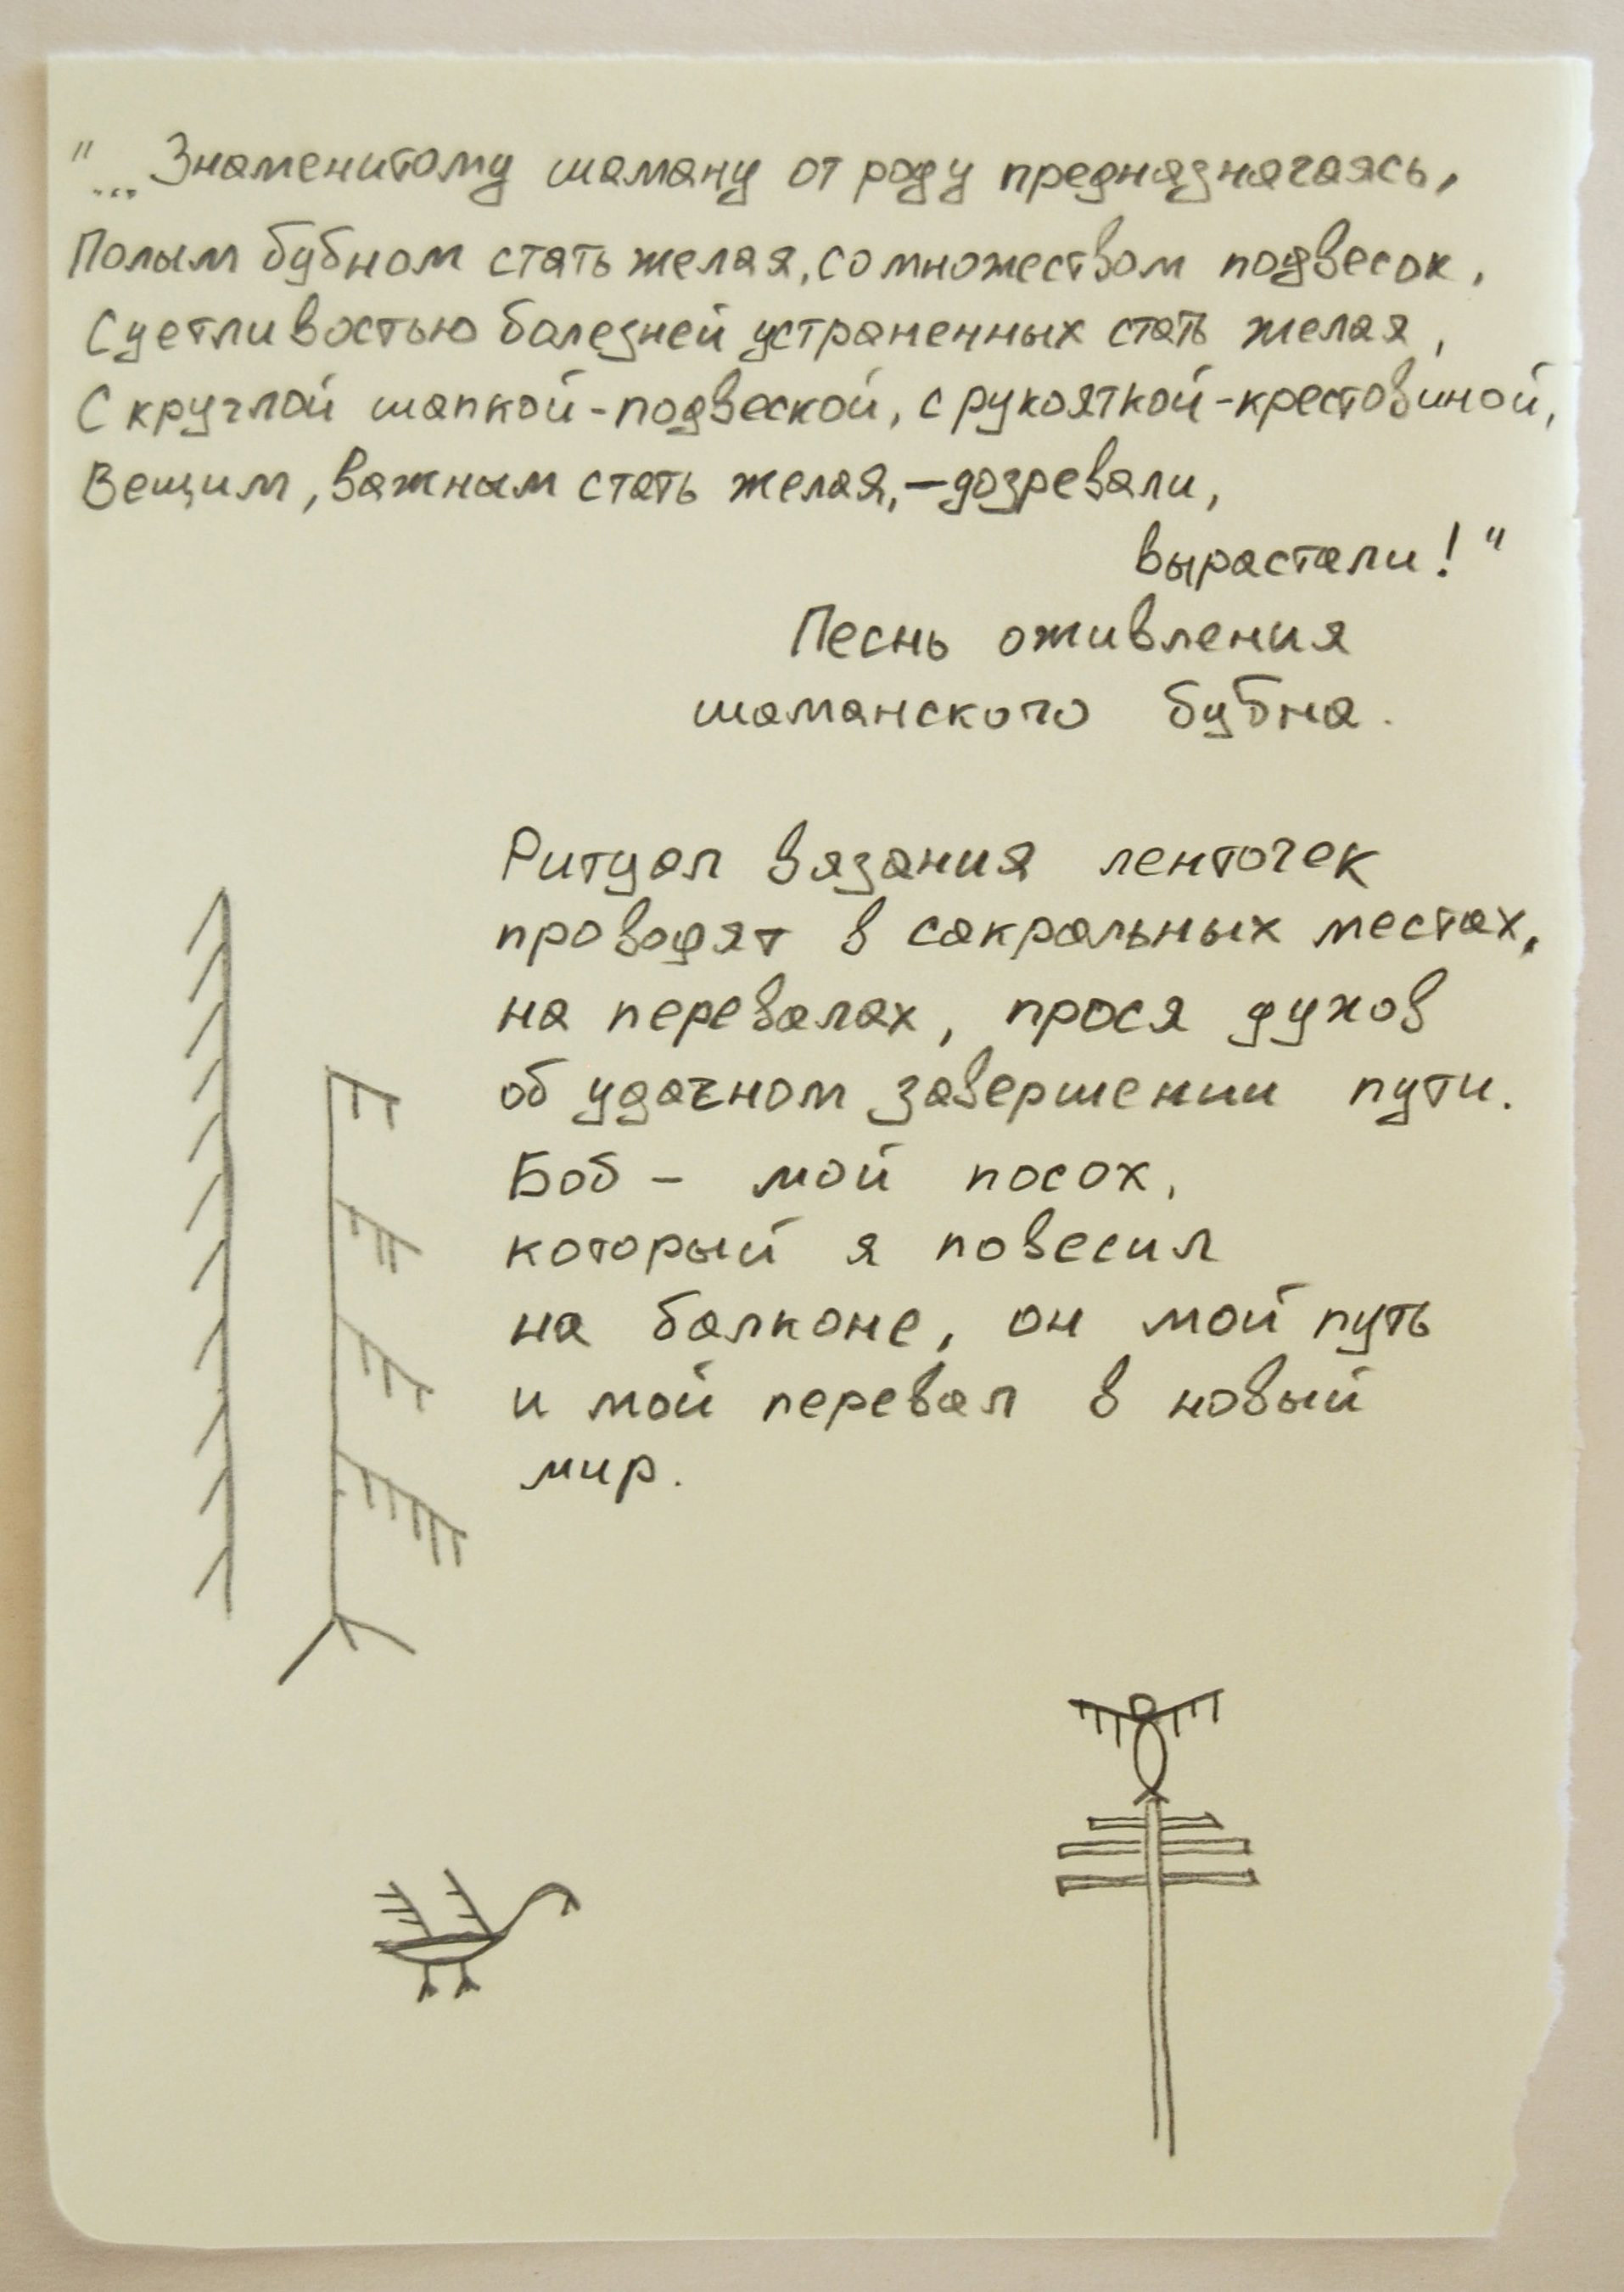 "... Знаменитому шаману от роду предназначаясь,
Полым бубном стать желая, со множеством подвесок,
Суетливостью болезней устраненных стать желая,
С круглой шапкой-подвеской, с рукояткой-крестовиной,
Вещим, важным стать желая, – дозревали,
вырастали!"
Песнь оживления
шаманского бубна.
Ритуал вязания ленточек
проводят в сакральных местах,
на перевалах, прося духов
об удачном завершении пути.
Боб – мой посох,
который я повесил
на балконе, он мой путь
и мой перевал в новый
мир.